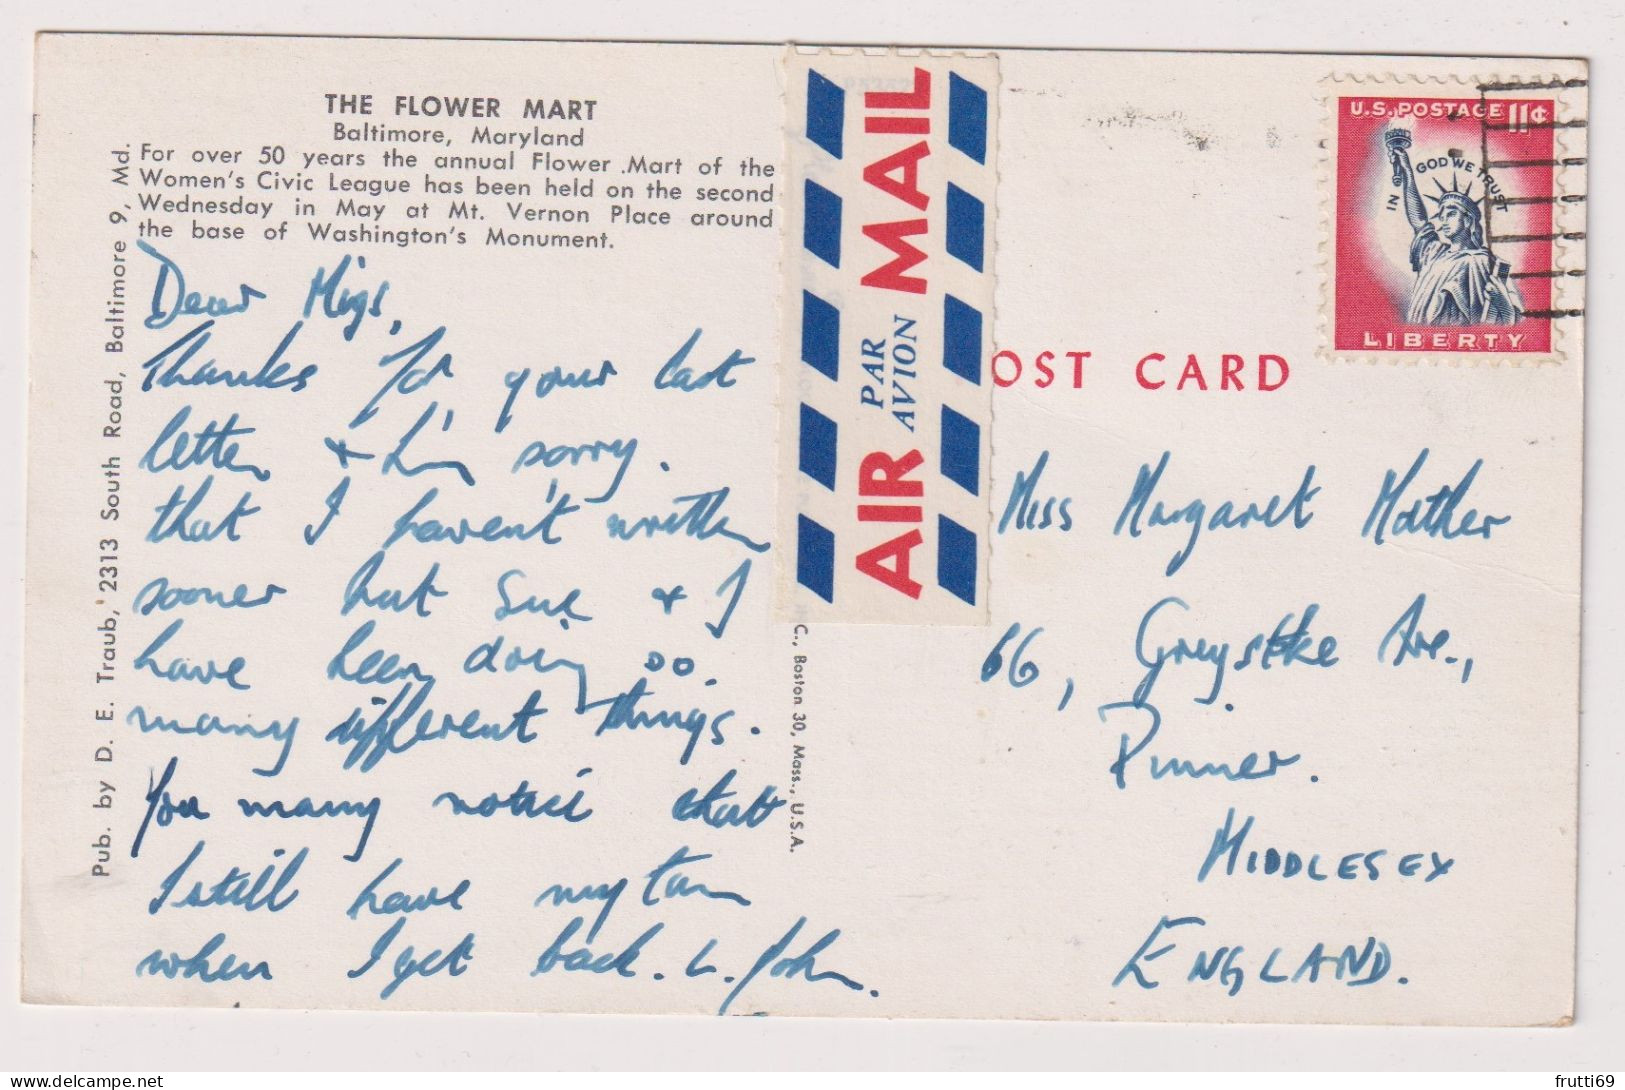 THE FLOWER MART
Baltimore, Maryland
For over 50 years the annual Flower .Mart of the
Women's Civic League has been held on the second
Wednesday in May at Mt. Vernon Place around
the base of Washington's Monument.
Pub. by D. E. Traub, 2313 South Road, Baltimore 9, Md.
Dear Migs,
Thanks for your last
letter & I'm sorry.
that I haven't written
sooner but Sue & I
have been doing so.
many different things.
You many notice that
I still have my tan
when I get back. L. John.
AIR MAIL
PAR
AVION
C., Boston 30, Mass., U.S.A.
U.S. POSTAGE 11¢
IN GOD WE TRUST
LIBERTY
OST CARD
Miss Margaret Mather
66, Greystoke Ave.,
Pinner.
MIDDLESEX
ENGLAND.
frutti69
delcampe.net